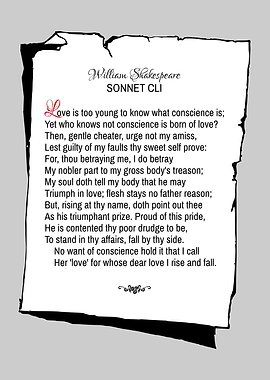 William Shakespeare
SONNET CLI
Love is too young to know what conscience is;
Yet who knows not conscience is born of love?
Then, gentle cheater, urge not my amiss,
Lest guilty of my faults thy sweet self prove:
For, thou betraying me, I do betray
My nobler part to my gross body's treason;
My soul doth tell my body that he may
Triumph in love; flesh stays no father reason;
But, rising at thy name, doth point out thee
As his triumphant prize. Proud of this pride,
He is contented thy poor drudge to be,
To stand in thy affairs, fall by thy side.
No want of conscience hold it that I call
Her 'love' for whose dear love I rise and fall.